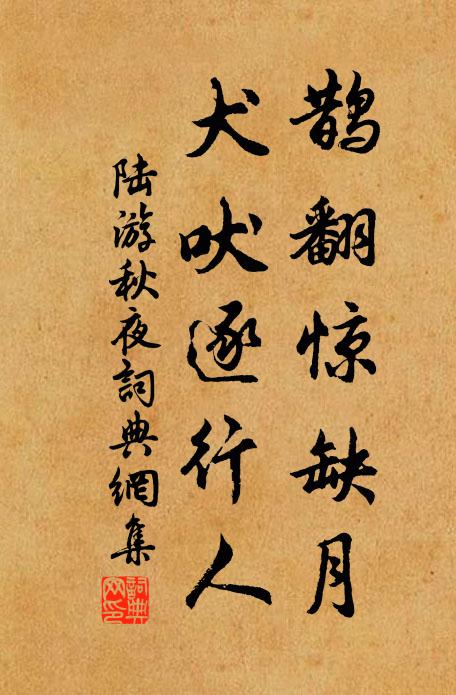 鹊翻惊缺月
犬吠逐行人
陆游秋夜詞典網集
詞典
网印